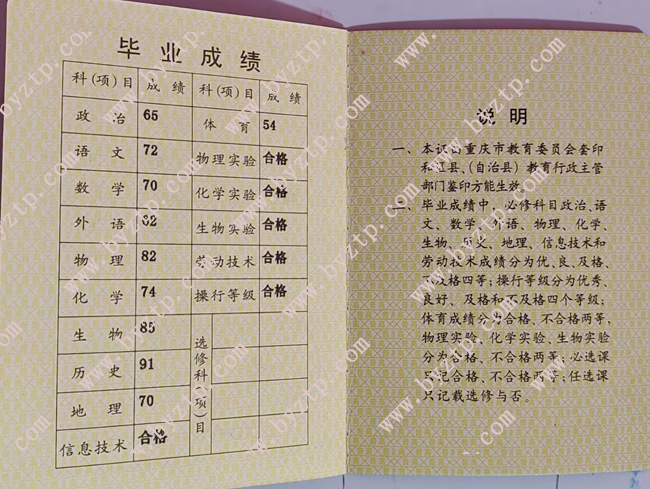 毕业成绩
科(项)目 成绩 科(项)目 成绩
政治 65 体育 54
语文 72 物理实验 合格
数学 70 化学实验 合格
外语 62 生物实验 合格
物理 82 劳动技术 合格
化学 74 操行等级 合格
生物 85 选修科(项)目
历史 91
地理 70
信息技术 合格
说明
一、本证由重庆市教育委员会套印
和江县、(自治县)教育行政主管
部门鉴印方能生效。
二、毕业成绩中,必修科目政治、语
文、数学、外语、物理、化学、
生物、历史、地理、信息技术和
劳动技术成绩分为优、良、及格、
不及格四等;操行等级分为优秀、
良好、及格和不及格四个等级;
体育成绩分为合格、不合格两等,
物理实验、化学实验、生物实验
分为合格、不合格两等;必选课
只记合格、不合格两等;任选课
只记载选修与否。
www.byztp.com